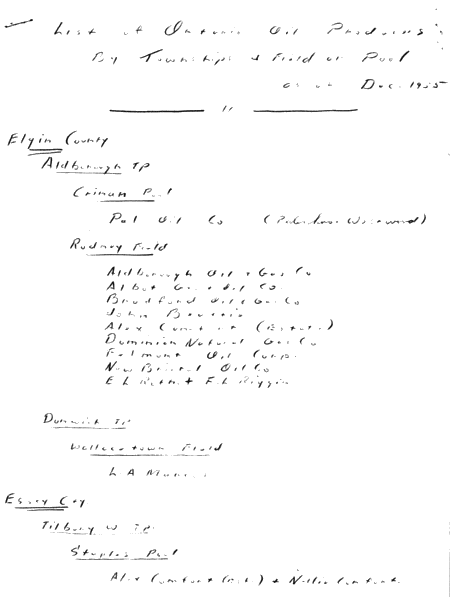 List of Ontario Oil Producers
By Townships & Field or Pool
as at Dec. 1955
Elgin County
Aldborough TP
Crinan Pool
Pal Oil Co
Rodney Field
Aldborough Oil & Gas Co
Albot Gas & Oil Co.
Bradford Oil & Gas Co
John
Alex (Estate)
Dominion Natural Gas Co
Felmont Oil Corp.
New Bristol Oil Co
E L & F L Riggin
Dunwich TP
Wallacetown Field
L A
Essex Cty
Tilbury W TP
Staples Pool
Alex Comfort & Nellie Comfort